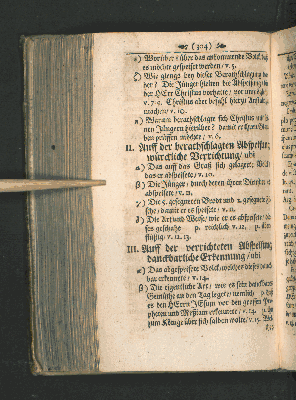 (304)
α) Worüber? über das ankommende Volck, daß
es möchte gespeiset werden / v. 5.
ε) Wie gieng es bey dieser Berathschlagung
der? Die Jünger hielten die Abspeisung
der HErr Christus vorhatte / vor unmüglich
v. 7. 9. Christus aber befahl hierzu Anstalt
machen / v. 10.
α) Warum berathschlagte sich Christus mit
nen Jüngern hierüber? damit er ihren Glau-
ben prüffen möchte / v. 6.
II. Auff der berathschlagten Abspeisung
würckliche Verrichtung / ubi
α) Das auff das Graß sich gelagert Volck
das er abspeisete / v. 10.
β) Die Jünger / durch deren ihren Dienst er
abspeisete / v. 11.
γ) Die 5. gesegneten Brodt und 2. gesegnete Fi-
sche / damit er es speisete / v. 11.
δ) Die Art und Weise / wie er es abspeisete / die-
ses geschahe p. reichlich v. 12. p.
flüßig / v. 12. 13.
III. Auff der verrichteten Abspeisung
danckbarliche Erkennung / ubi
α) Das abgespeisete Volck / welches diese danck-
bar erkennete / v. 14.
β) Die eigentliche Art / wie es sein danckbares
Gemüthe an den Tag legete / nemlich
es den HErrn JEsum vor den grossen Pro-
pheten und Messiam erkennete / v. 14.
zum Könige über sich haben wolte / v. 15.